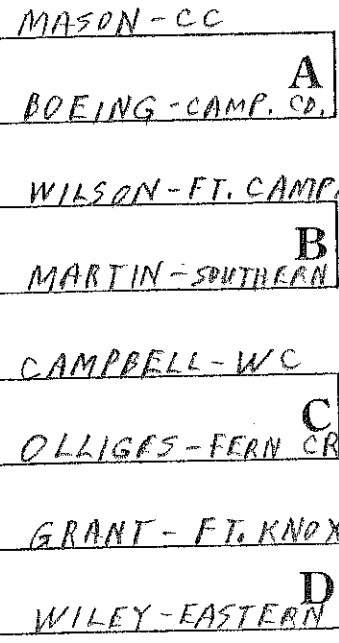 MASON - CC
A
BOEING - CAMP. CO.
WILSON - FT. CAMP.
B
MARTIN - SOUTHERN
CAMPBELL - WC
C
OLLIGES - FERN CR
GRANT - FT. KNOX
D
WILEY - EASTERN